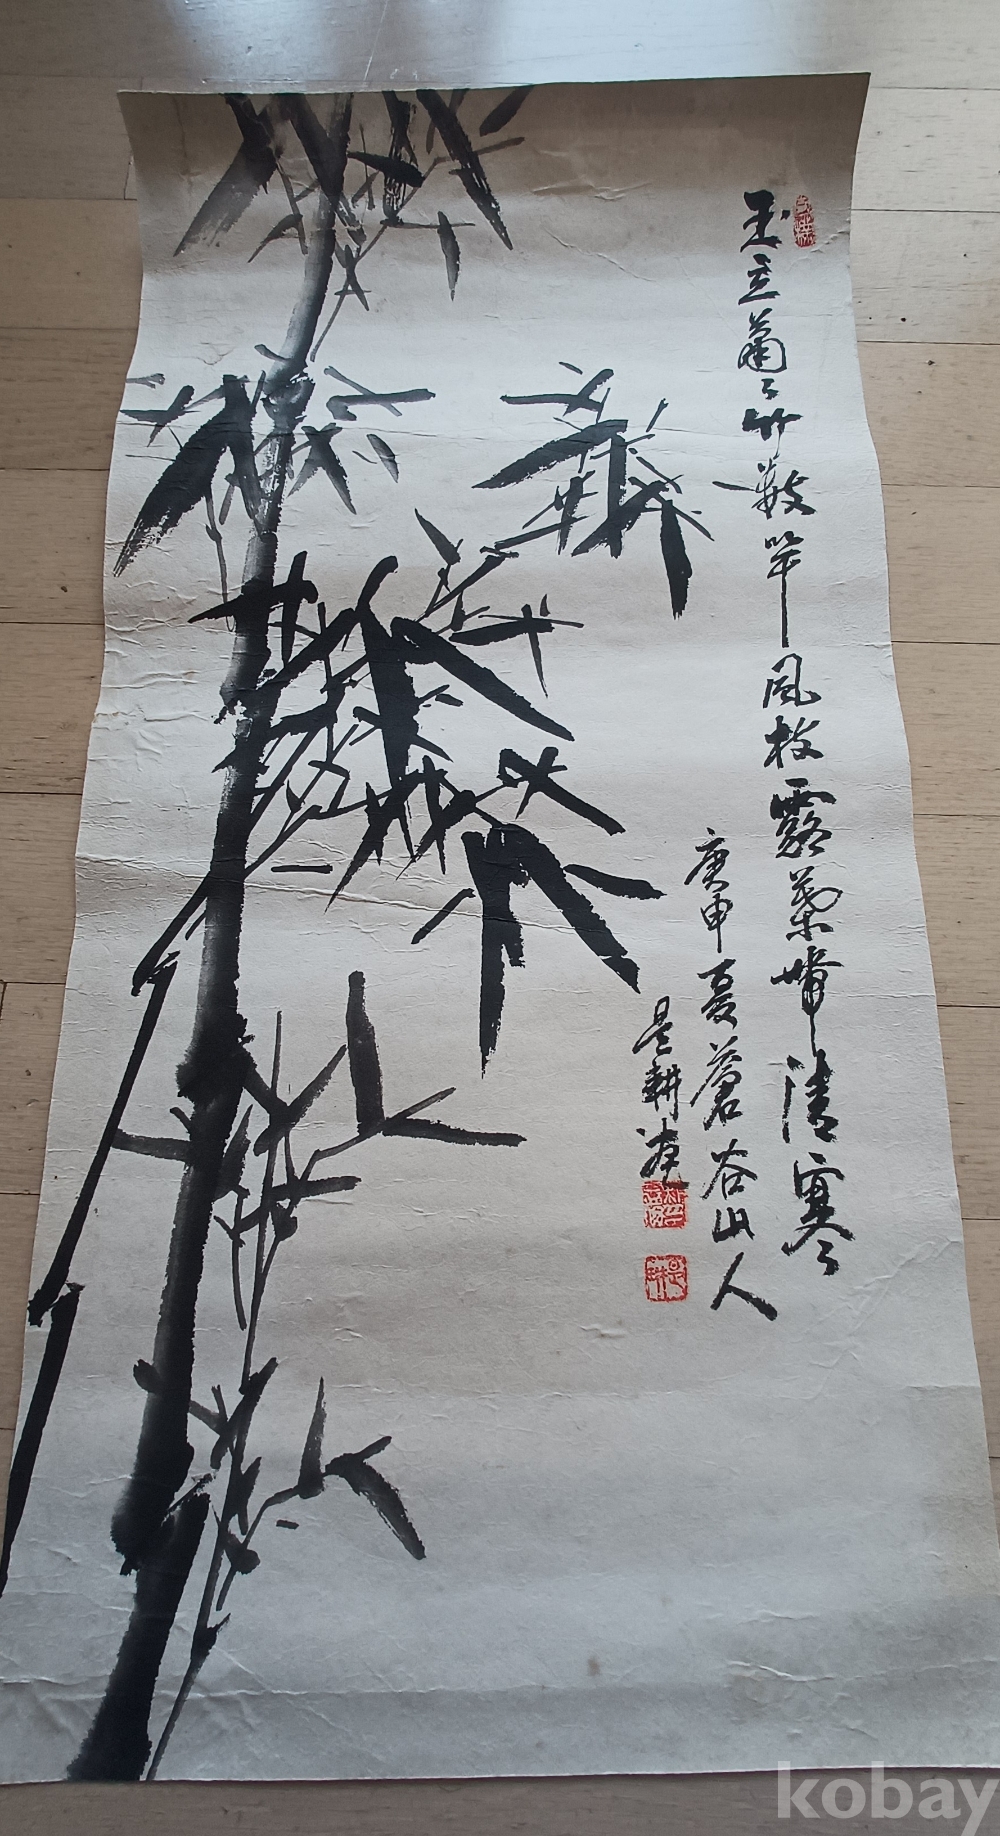 玉立蕭〻竹數竿風枝露葉帶清寒
庚申夏蒼谷山人
是耕
kobay